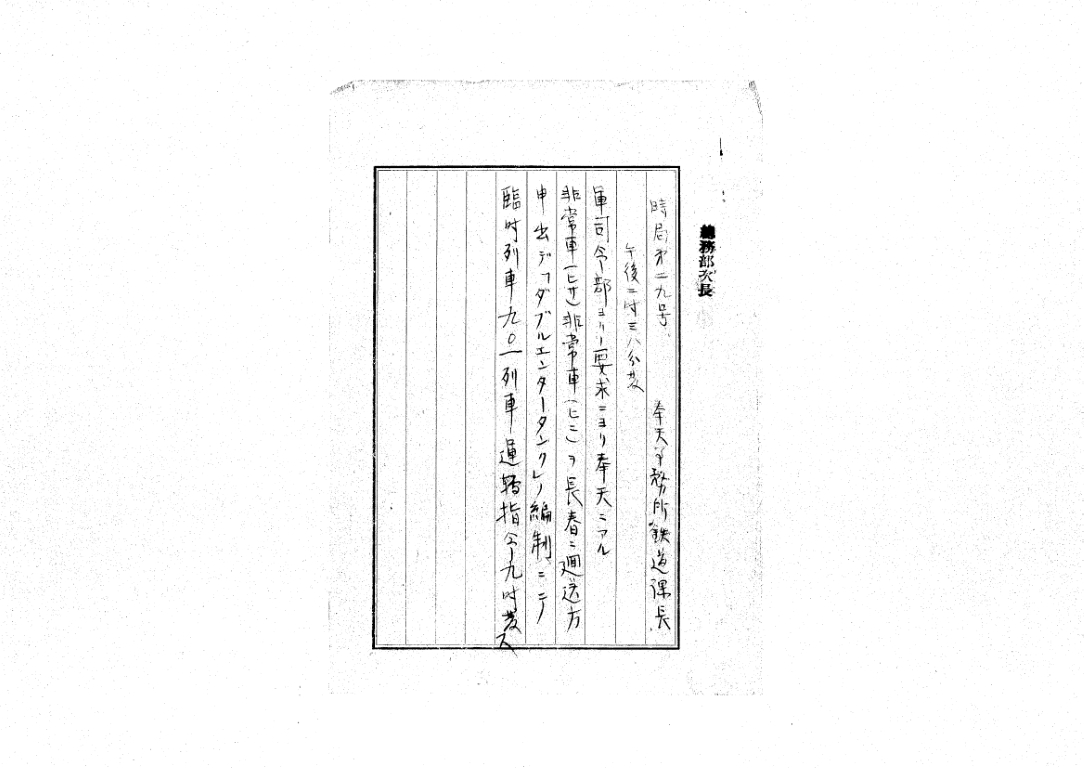 總務部次長
時局第二九号、 奉天事務所鉄道課長
午後二時三八分発
軍司令部ヨリノ要求ニヨリ奉天ニアル
非常車(ヒサ)非常車(ヒミ)ヲ長春ニ廻送方
申出デ「ダブルエンタータンク」ノ編制ニテ
臨時列車九〇一列車ノ運転指令九時発ス